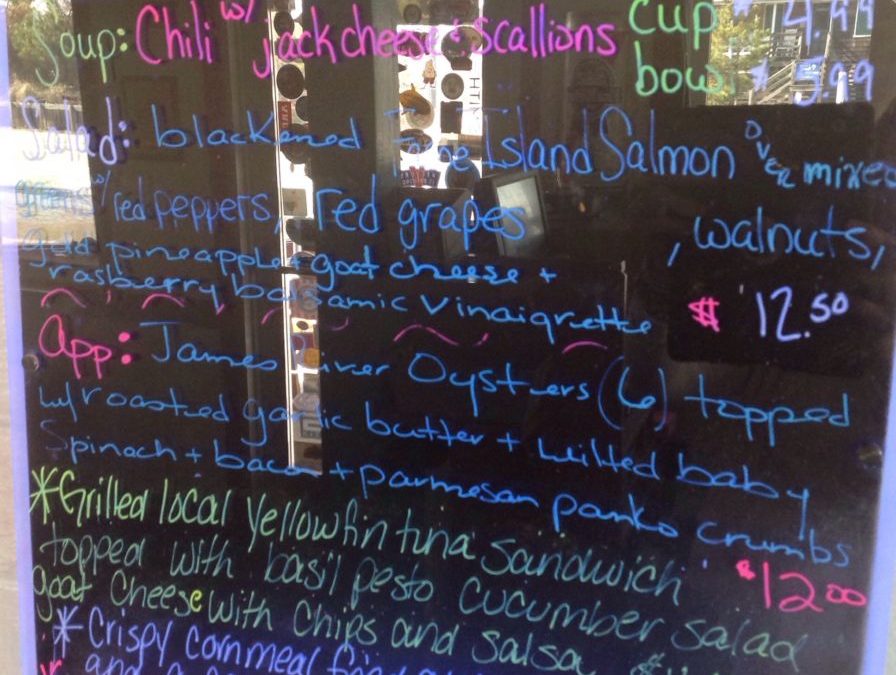 Soup: Chili w/ jack cheese + Scallions cup $ 4.99
bowl $ 5.99
Salad: blackened Faroe Island Salmon over mixed
greens w/ red peppers, red grapes, walnuts,
gold pineapple + goat cheese +
rasberry balsamic vinaigrette $ 12.50
App: James River Oysters (6) topped
w/ roasted garlic butter + wilted baby
Spinach + bacon + parmesan panko crumbs
$12.00
*Grilled local yellowfin tuna sandwich
topped with basil pesto cucumber salad
goat cheese with chips and salsa
* Crispy cornmeal fried
and